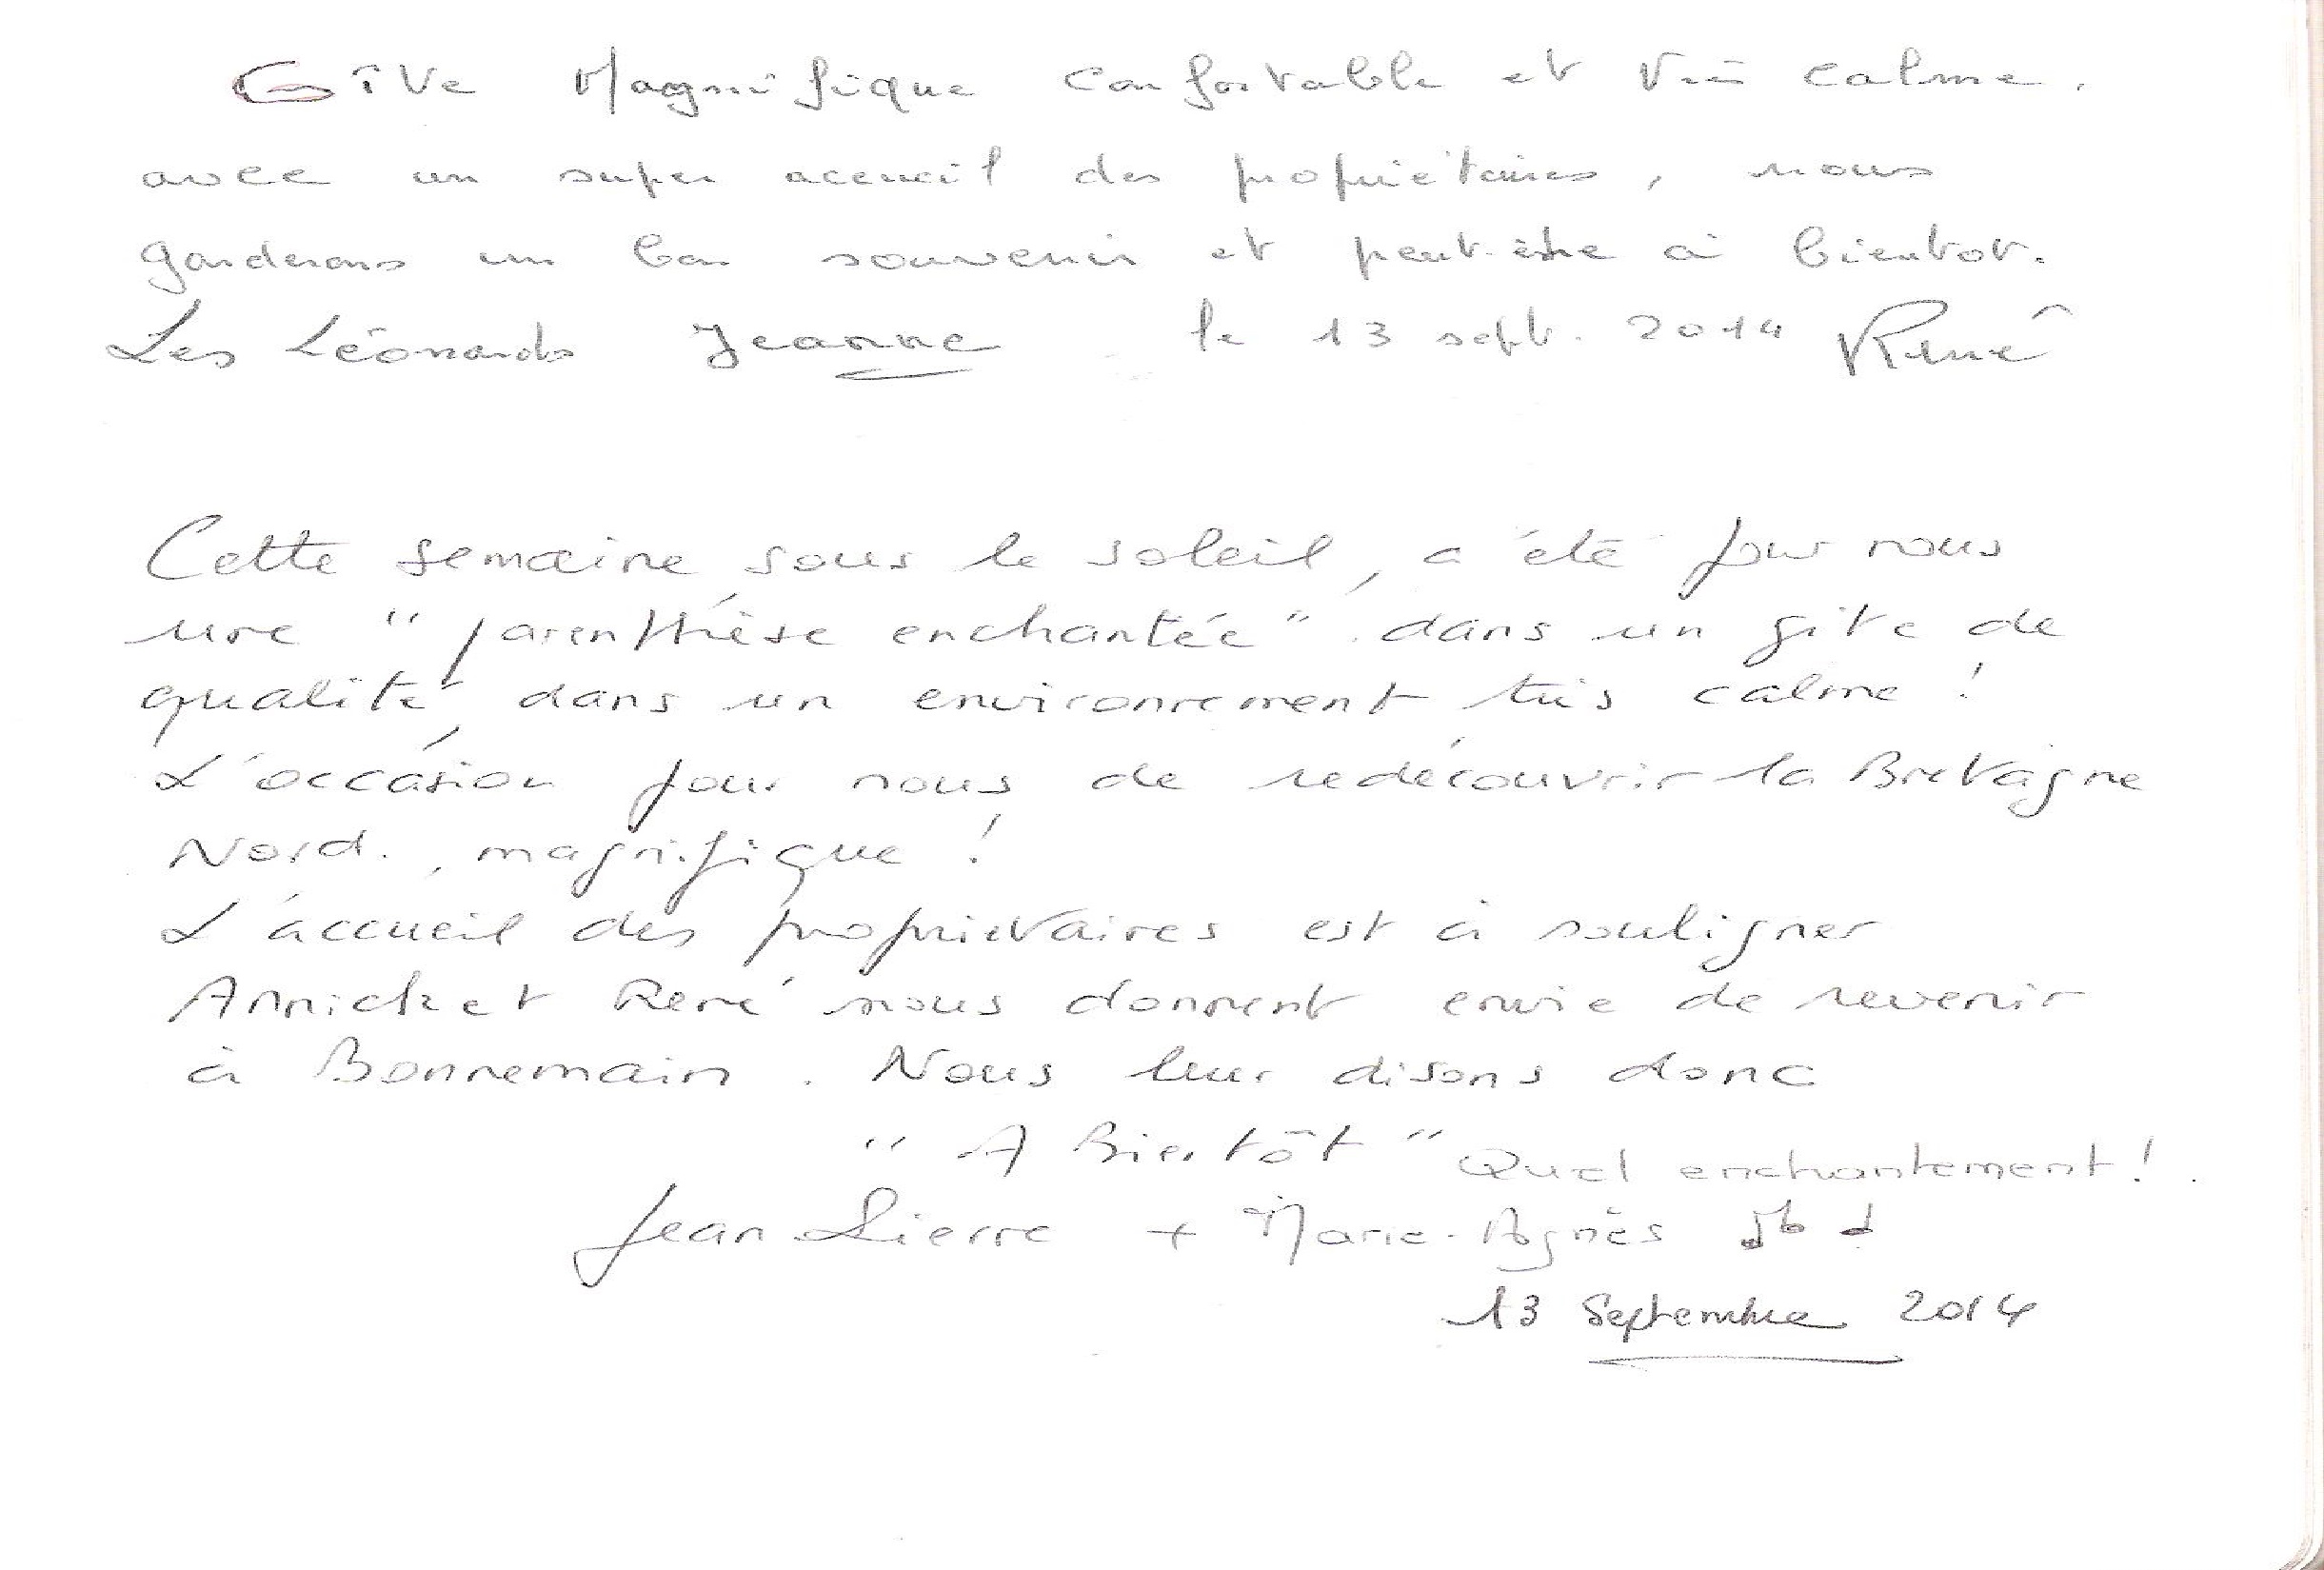 Gîte Magnifique confortable et très calme.
avec un super accueil des propriétaires, nous
garderons un bon souvenir et peut-être à bientot.
Les Léonards Jeanne le 13 sept. 2014 René
Cette semaine sous le soleil, a été pour nous
une "parenthèse enchantée" dans un gite de
qualité, dans un environnement très calme !
L'occasion pour nous de redécouvrir la Bretagne
Nord., magnifique !
L'accueil des propriétaires est à souligner
Annick et René nous donnent envie de revenir
à Bonnemain. Nous leur disons donc
"A Bientôt" Quel enchantement !
Jean Pierre + Marie-Agnès
13 Septembre 2014